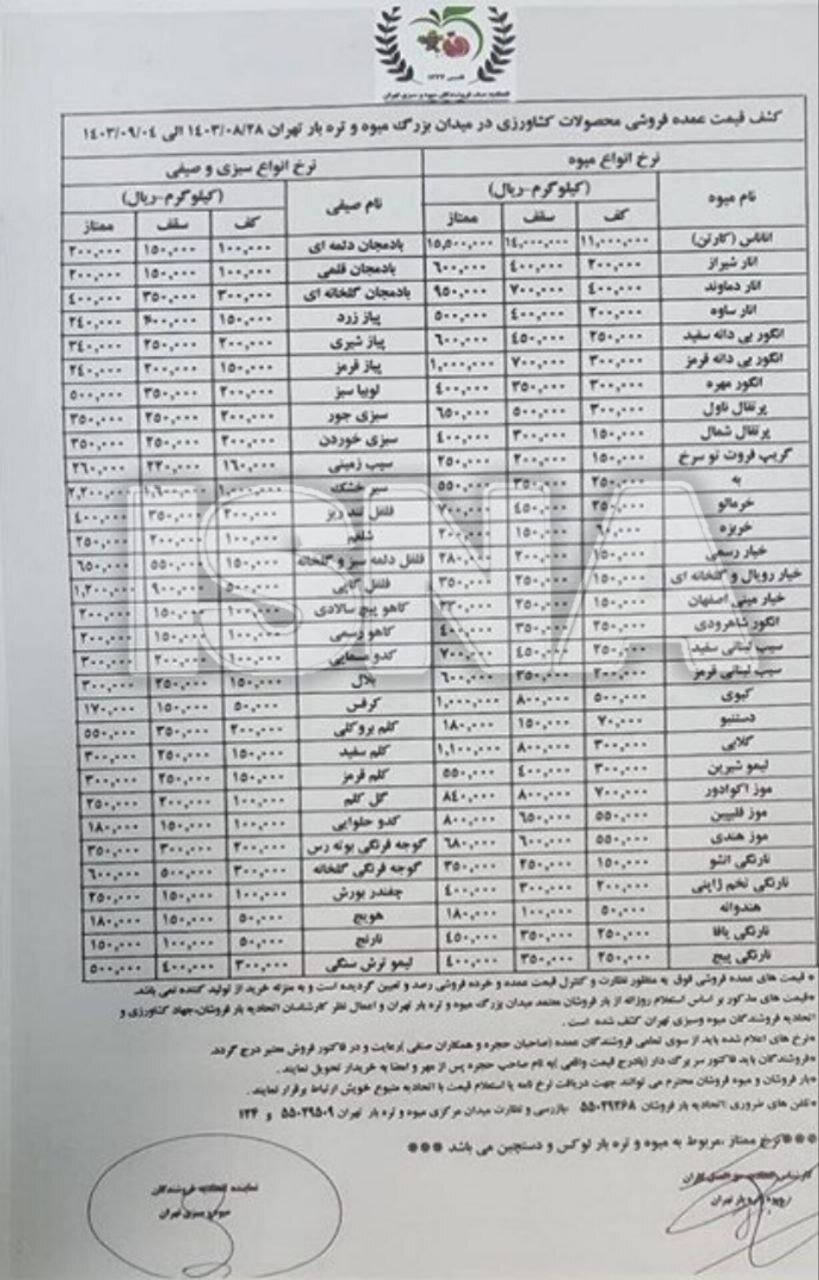 تاسیس ۱۳۲۴
اتحادیه صنف فروشندگان میوه و سبزی تهران
کشف قیمت عمده فروشی محصولات کشاورزی در میدان بزرگ میوه و تره بار تهران ۱۴۰۳/۰۸/۲۸ الی ۱۴۰۳/۰۹/۰۴
نرخ انواع میوه نرخ انواع سبزی و صیفی
نام میوه (کیلوگرم-ریال) نام صیفی (کیلوگرم-ریال)
کف سقف ممتاز کف سقف ممتاز
اناناس (کارتن) ۱۱,۰۰۰,۰۰۰ ۱۴,۰۰۰,۰۰۰ ۱۵,۵۰۰,۰۰۰ بادمجان دلمه ای ۱۰۰,۰۰۰ ۱۵۰,۰۰۰ ۲۰۰,۰۰۰
انار شیراز ۲۰۰,۰۰۰ ۴۰۰,۰۰۰ ۶۰۰,۰۰۰ بادمجان قلمی ۱۰۰,۰۰۰ ۱۵۰,۰۰۰ ۲۰۰,۰۰۰
انار دماوند ۴۰۰,۰۰۰ ۷۰۰,۰۰۰ ۹۵۰,۰۰۰ بادمجان گلخانه ای ۳۰۰,۰۰۰ ۳۵۰,۰۰۰ ۴۰۰,۰۰۰
انار ساوه ۲۰۰,۰۰۰ ۴۰۰,۰۰۰ ۵۰۰,۰۰۰ پیاز زرد ۱۵۰,۰۰۰ ۲۴۰,۰۰۰
انگور بی دانه سفید ۲۵۰,۰۰۰ ۴۵۰,۰۰۰ ۶۰۰,۰۰۰ پیاز شیری ۲۰۰,۰۰۰ ۲۵۰,۰۰۰ ۳۴۰,۰۰۰
انگور بی دانه قرمز ۳۰۰,۰۰۰ ۷۰۰,۰۰۰ ۱,۰۰۰,۰۰۰ پیاز قرمز ۱۵۰,۰۰۰ ۲۰۰,۰۰۰ ۲۴۰,۰۰۰
انگور مهره ۳۰۰,۰۰۰ ۳۵۰,۰۰۰ ۴۰۰,۰۰۰ لوبیا سبز ۲۰۰,۰۰۰ ۳۵۰,۰۰۰ ۵۰۰,۰۰۰
پرتقال ناول ۳۰۰,۰۰۰ ۵۰۰,۰۰۰ ۶۵۰,۰۰۰ سبزی جور ۲۰۰,۰۰۰ ۲۵۰,۰۰۰ ۳۵۰,۰۰۰
پرتقال شمال ۱۵۰,۰۰۰ ۳۰۰,۰۰۰ ۴۰۰,۰۰۰ سبزی خوردن ۲۰۰,۰۰۰ ۲۵۰,۰۰۰ ۳۵۰,۰۰۰
گریپ فروت تو سرخ ۱۵۰,۰۰۰ ۲۰۰,۰۰۰ ۲۵۰,۰۰۰ سیب زمینی ۱۶۰,۰۰۰ ۲۲۰,۰۰۰ ۲۶۰,۰۰۰
به ۲۵۰,۰۰۰ ۳۵۰,۰۰۰ ۵۵۰,۰۰۰ سیر خشک ۱,۰۰۰,۰۰۰ ۱,۶۰۰,۰۰۰ ۲,۲۰۰,۰۰۰
خرمالو ۲۵۰,۰۰۰ ۴۵۰,۰۰۰ ۷۰۰,۰۰۰ فلفل تند ریز ۲۰۰,۰۰۰ ۳۵۰,۰۰۰ ۴۰۰,۰۰۰
خربزه ۶۰,۰۰۰ ۱۵۰,۰۰۰ ۲۰۰,۰۰۰ شلغم ۱۰۰,۰۰۰ ۲۰۰,۰۰۰ ۲۵۰,۰۰۰
خیار رسمی ۱۵۰,۰۰۰ ۲۰۰,۰۰۰ ۲۸۰,۰۰۰ فلفل دلمه سبز و گلخانه ۱۵۰,۰۰۰ ۵۵۰,۰۰۰ ۶۵۰,۰۰۰
خیار رویال و گلخانه ای ۱۵۰,۰۰۰ ۲۵۰,۰۰۰ ۳۵۰,۰۰۰ فلفل کاپی ۵۰۰,۰۰۰ ۹۰۰,۰۰۰ ۱,۲۰۰,۰۰۰
خیار مینی اصفهان ۱۵۰,۰۰۰ ۲۵۰,۰۰۰ ۳۲۰,۰۰۰ کاهو پیچ سالادی ۱۰۰,۰۰۰ ۱۵۰,۰۰۰ ۲۰۰,۰۰۰
انگور شاهرودی ۲۵۰,۰۰۰ ۳۵۰,۰۰۰ ۴۰۰,۰۰۰ کاهو رسمی ۱۰۰,۰۰۰ ۱۵۰,۰۰۰ ۲۰۰,۰۰۰
سیب لبنانی سفید ۲۵۰,۰۰۰ ۴۵۰,۰۰۰ ۷۰۰,۰۰۰ کدو مسمایی ۱۰۰,۰۰۰ ۲۰۰,۰۰۰ ۳۰۰,۰۰۰
سیب لبنانی قرمز ۲۰۰,۰۰۰ ۳۵۰,۰۰۰ ۶۰۰,۰۰۰ بلال ۱۵۰,۰۰۰ ۲۵۰,۰۰۰ ۳۰۰,۰۰۰
کیوی ۵۰۰,۰۰۰ ۸۰۰,۰۰۰ ۱,۰۰۰,۰۰۰ کرفس ۵۰,۰۰۰ ۱۵۰,۰۰۰ ۱۷۰,۰۰۰
دستنبو ۷۰,۰۰۰ ۱۵۰,۰۰۰ ۱۸۰,۰۰۰ کلم بروکلی ۲۰۰,۰۰۰ ۳۵۰,۰۰۰ ۵۵۰,۰۰۰
گلابی ۳۰۰,۰۰۰ ۸۰۰,۰۰۰ ۱,۱۰۰,۰۰۰ کلم سفید ۱۵۰,۰۰۰ ۲۵۰,۰۰۰ ۳۰۰,۰۰۰
لیمو شیرین ۳۰۰,۰۰۰ ۴۰۰,۰۰۰ ۵۵۰,۰۰۰ کلم قرمز ۱۵۰,۰۰۰ ۲۵۰,۰۰۰ ۳۰۰,۰۰۰
موز اکوادور ۷۰۰,۰۰۰ ۸۰۰,۰۰۰ ۸۴۰,۰۰۰ گل کلم ۱۰۰,۰۰۰ ۲۰۰,۰۰۰ ۲۵۰,۰۰۰
موز فلیپین ۵۵۰,۰۰۰ ۶۵۰,۰۰۰ ۸۰۰,۰۰۰ کدو حلوایی ۱۰۰,۰۰۰ ۱۵۰,۰۰۰ ۱۸۰,۰۰۰
موز هندی ۵۵۰,۰۰۰ ۶۰۰,۰۰۰ ۶۸۰,۰۰۰ گوجه فرنگی بوته رس ۲۰۰,۰۰۰ ۳۰۰,۰۰۰ ۳۵۰,۰۰۰
نارنگی انشو ۱۵۰,۰۰۰ ۲۵۰,۰۰۰ ۳۵۰,۰۰۰ گوجه فرنگی گلخانه ۳۰۰,۰۰۰ ۵۰۰,۰۰۰ ۶۰۰,۰۰۰
نارنگی تخم ژاپنی ۲۰۰,۰۰۰ ۳۰۰,۰۰۰ ۴۰۰,۰۰۰ چغندر بورش ۱۰۰,۰۰۰ ۱۵۰,۰۰۰ ۲۵۰,۰۰۰
هندوانه ۵۰,۰۰۰ ۱۰۰,۰۰۰ ۱۸۰,۰۰۰ هویج ۵۰,۰۰۰ ۱۵۰,۰۰۰ ۱۸۰,۰۰۰
نارنگی یافا ۲۵۰,۰۰۰ ۳۵۰,۰۰۰ ۴۵۰,۰۰۰ نارنج ۵۰,۰۰۰ ۱۰۰,۰۰۰ ۱۵۰,۰۰۰
نارنگی پیج ۲۵۰,۰۰۰ ۳۵۰,۰۰۰ ۴۰۰,۰۰۰ لیمو ترش سنگی ۳۰۰,۰۰۰ ۴۰۰,۰۰۰ ۵۰۰,۰۰۰
ISNA
* قیمت های عمده فروشی فوق به منظور نظارت و کنترل قیمت عمده و خرده فروشی رصد و تعیین گردیده است و به منزله خرید از تولید کننده نمی باشد.
*قیمت های مذکور بر اساس استعلام روزانه از بار فروشان معتمد میدان بزرگ میوه و تره بار تهران و اعمال نظر کارشناسان اتحادیه بار فروشان،جهاد کشاورزی و
اتحادیه فروشندگان میوه وسبزی تهران کشف شده است .
*نرخ های اعلام شده باید از سوی تمامی فروشندگان عمده (صاحبان حجره و همکاران صنفی )رعایت و در فاکتور فروش معتبر درج گردد.
*فروشندگان باید فاکتور سر برگ دار (بادرج قیمت واقعی )به نام صاحب حجره پس از مهر و امضا به خریدار تحویل نمایند .
*بار فروشان و میوه فروشان محترم می توانند جهت دریافت نرخ نامه یا استعلام قیمت با اتحادیه متبوع خویش ارتباط برقرار نمایند .
*تلفن های ضروری :اتحادیه بار فروشان ۵۵۰۲۹۳۶۸ بازرسی و نظارت میدان مرکزی میوه و تره بار تهران ۵۵۰۲۹۵۰۹ و ۱۲۴
***نرخ ممتاز ،مربوط به میوه و تره بار لوکس و دستچین می باشد ***
نماینده اتحادیه فروشندگان
میوه و سبزی تهران